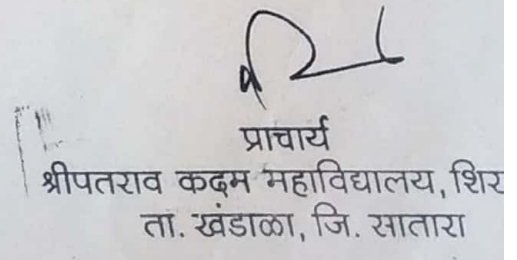 प्राचार्य
श्रीपतराव कदम महाविद्यालय, शिर
ता. खंडाळा, जि. सातारा